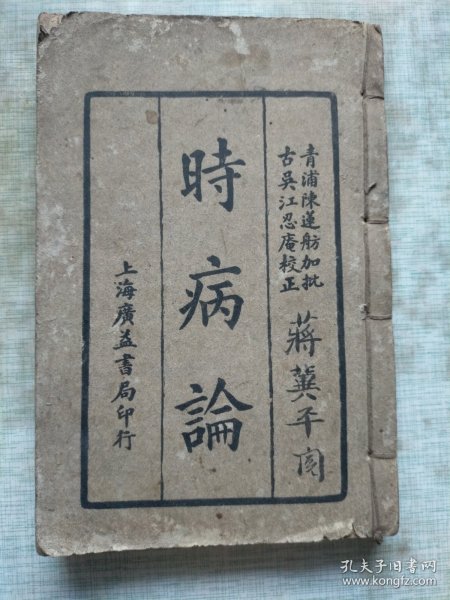 青浦陳蓮舫加批
古吳江忍庵校正
蔣冀平閱
時病論
上海廣益書局印行
孔夫子旧书网
www.kongfz.com